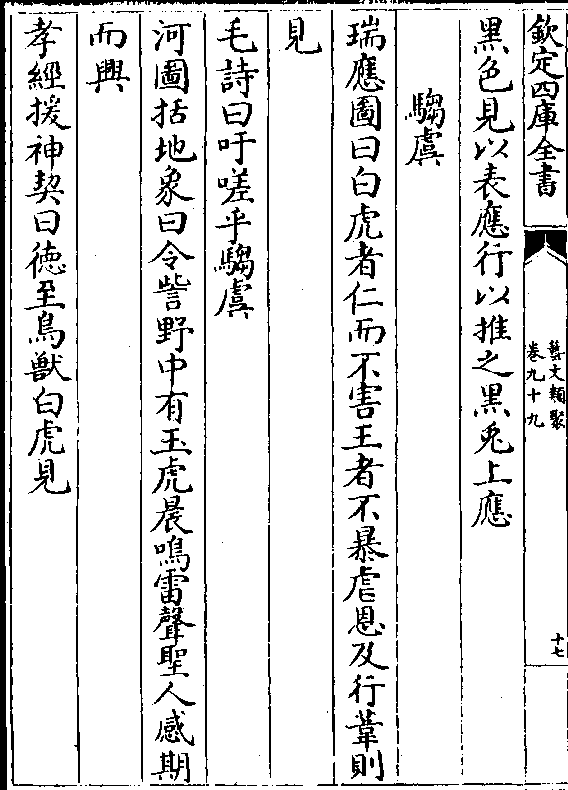 欽定四庫全書
藝文類聚
卷九十九
十七
黑色見以表應行以推之黑兎上應
騶虞
瑞應圖曰白虎者仁而不害王者不暴虐恩及行葦則
見
毛詩曰吁嗟乎騶虞
河圖括地象曰令訾野中有玉虎晨鳴雷聲聖人感期
而興
孝經援神契曰徳至鳥獸白虎見